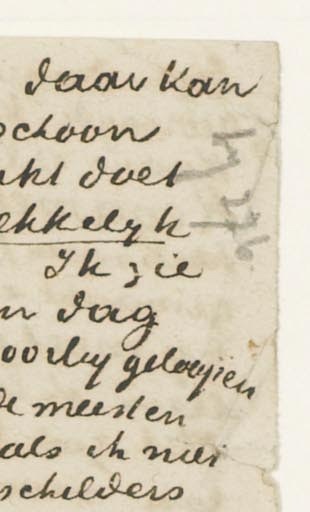 daar kan
schoon
kht doet
ekkelyk
Ik zie
n dag
oorby geloopen
de meesten
als ik niet
schilders